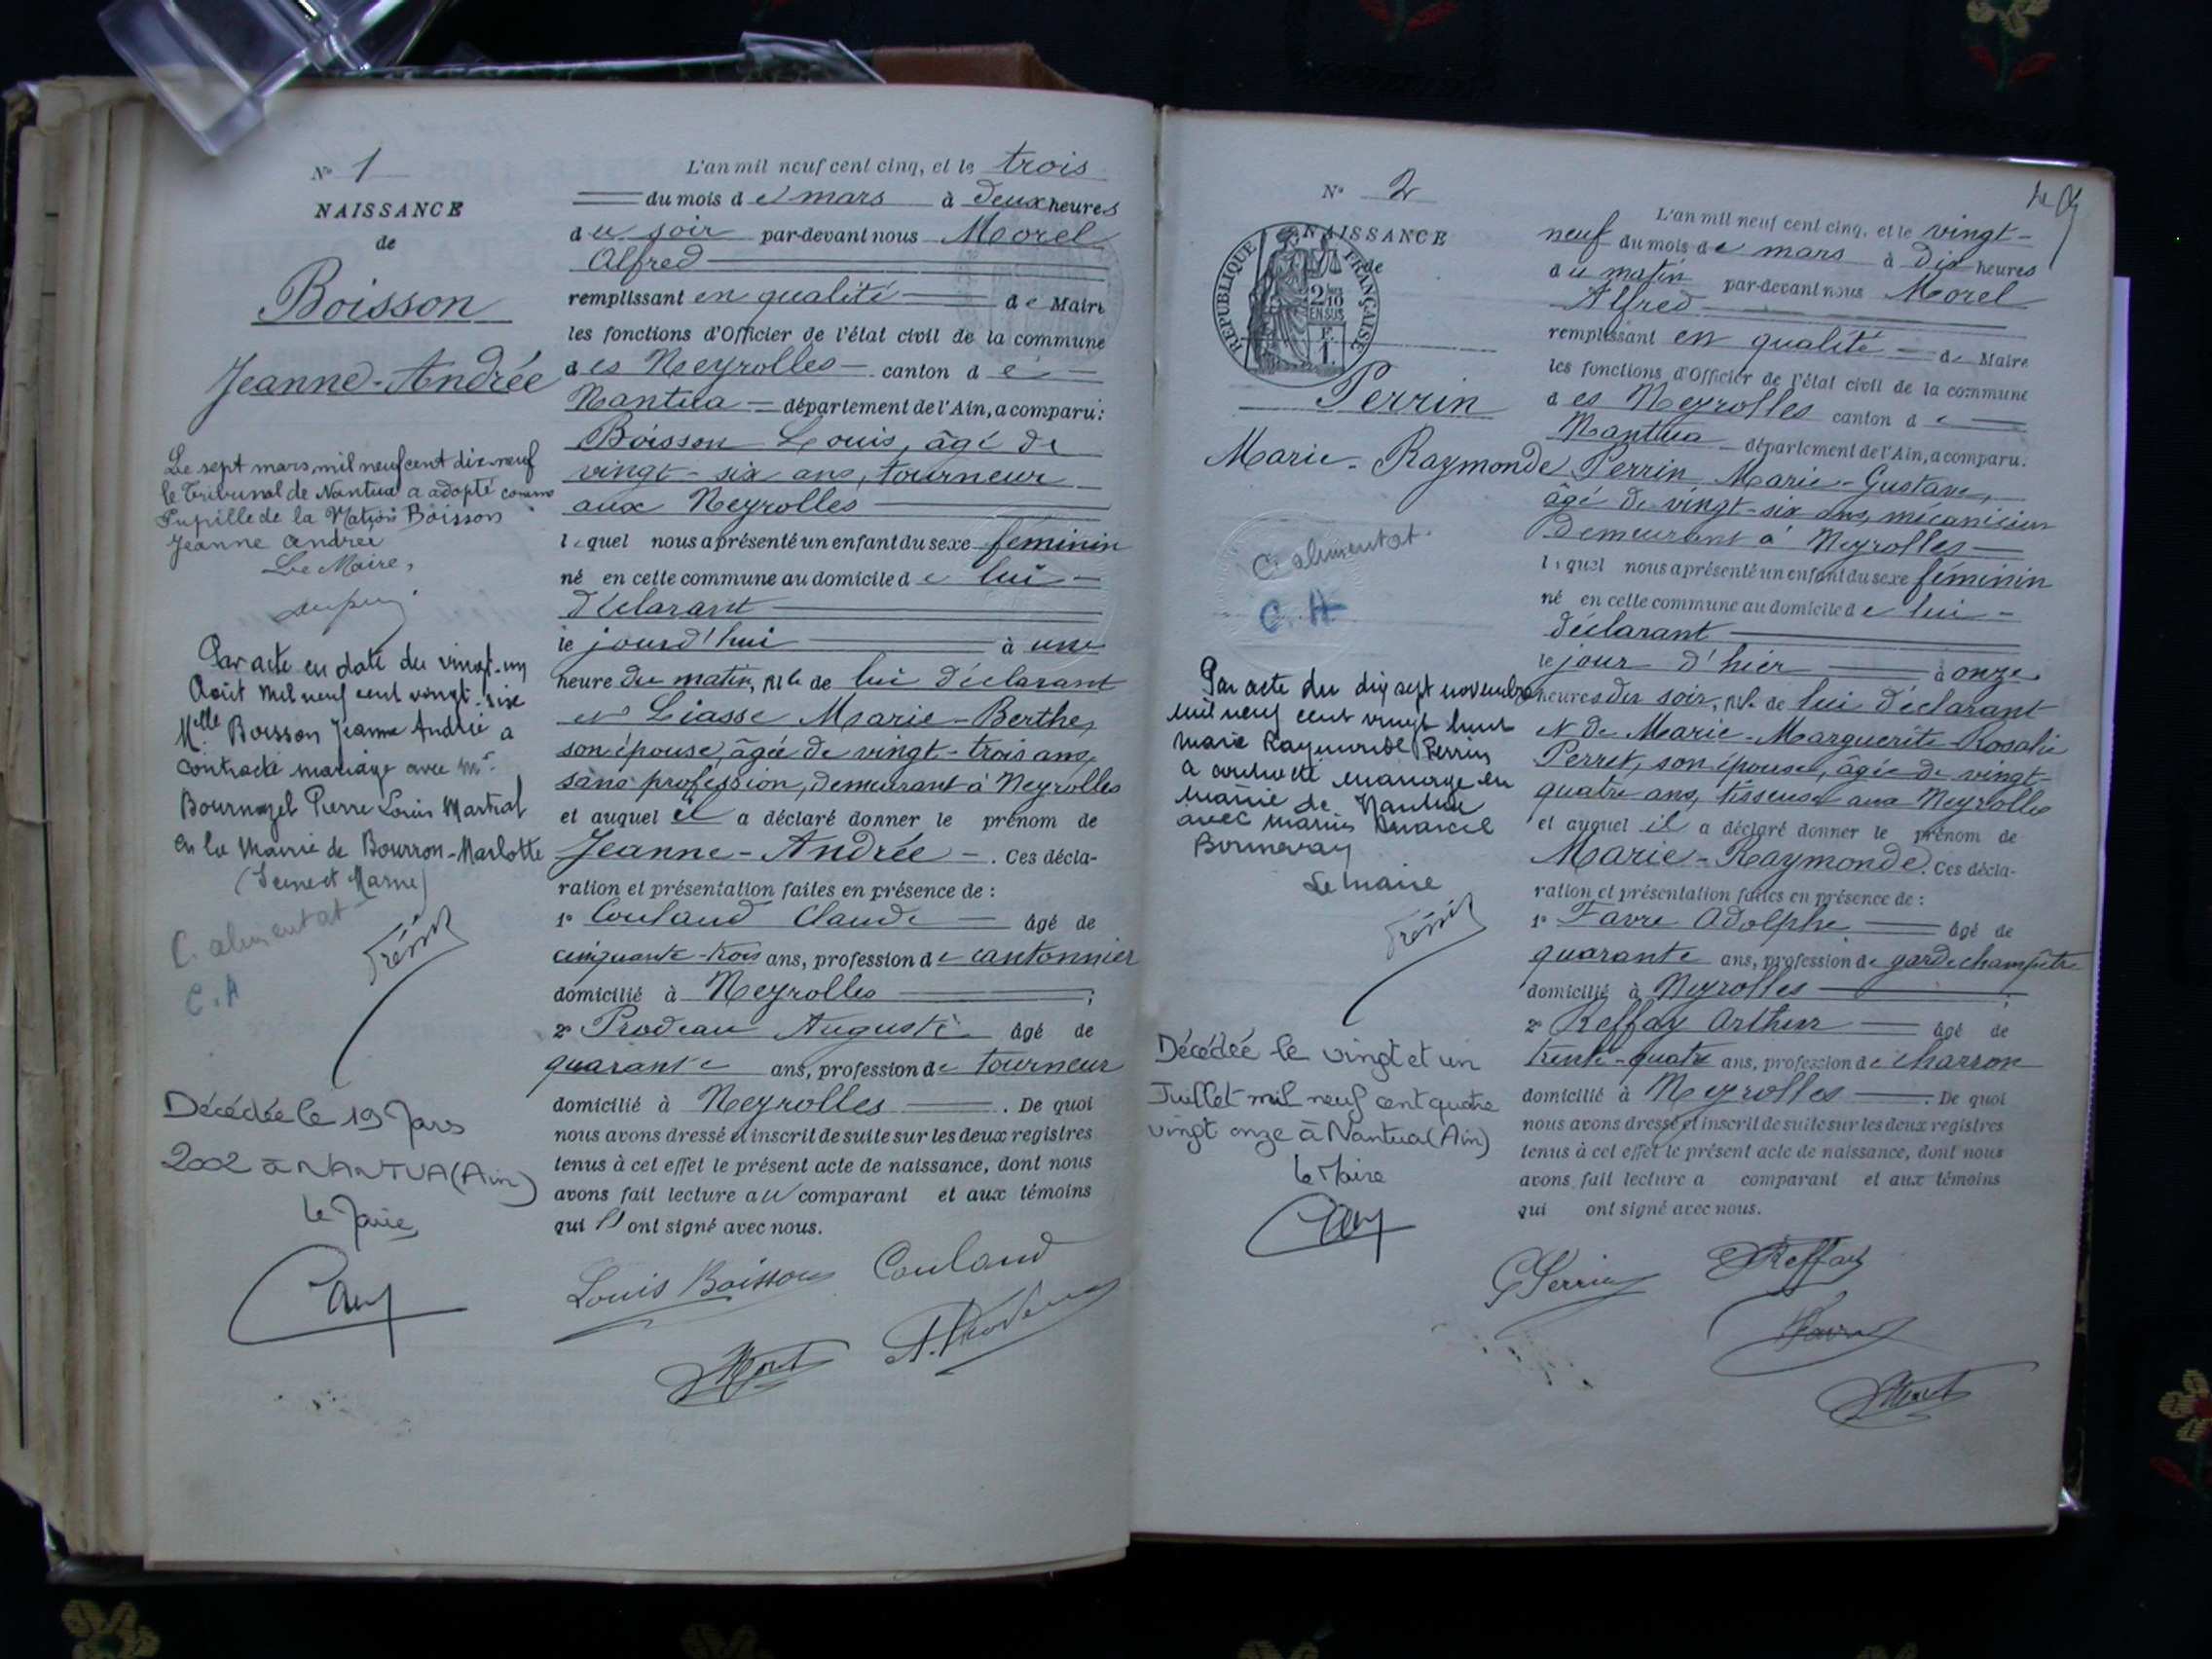 N° 1
NAISSANCE
de
Boisson
Jeanne-Andrée
Le sept mars mil neuf cent dix-neuf
le Tribunal de Nantua a adopté comme
Pupille de la Nation Boisson
Jeanne Andrée
Le Maire,
Par acte en date du vingt-un
Août mil neuf cent vingt-six
Melle Boisson Jeanne Andrée a
contracté mariage avec Mr
Bournazel Pierre Louis Martial
en la Mairie de Bourron-Marlotte
(Seine et Marne)
C. alimentat
C.A
Décédée le 19 Mars
2002 à NANTUA (Ain)
Le Maire
L'an mil neuf cent cinq, et le trois
du mois de mars à deux heures
du soir par-devant nous Morel
Alfred
remplissant en qualité de Maire
les fonctions d'Officier de l'état civil de la commune
des Neyrolles canton de
Nantua département de l'Ain, a comparu:
Boisson Louis, âgé de
vingt-six ans, tourneur
aux Neyrolles
lequel nous a présenté un enfant du sexe féminin
né en cette commune au domicile de lui
déclarant
le jourd'hui à une
heure du matin, fille de lui déclarant
et Liasse Marie-Berthe,
son épouse, âgée de vingt-trois ans,
sans profession, demeurant à Neyrolles
et auquel il a déclaré donner le prénom de
Jeanne-Andrée. Ces décla-
ration et présentation faites en présence de :
1° Couland Claude âgé de
cinquante-trois ans, profession de cantonnier
domicilié à Neyrolles ;
2° Prodeau Auguste âgé de
quarante ans, profession de tourneur
domicilié à Neyrolles. De quoi
nous avons dressé et inscrit de suite sur les deux registres
tenus à cet effet le présent acte de naissance, dont nous
avons fait lecture au comparant et aux témoins
qui ont signé avec nous.
Louis Boisson Couland
N° 2
NAISSANCE
de
RÉPUBLIQUE FRANÇAISE
2/10
EN SUS
F.
1.
Perrin
Marie-Raymonde
C. alimentat.
C.A
Par acte du dix sept novembre
mil neuf cent vingt huit
Marie Raymonde Perrin
a contracté mariage en
mairie de Nantua
avec Marius Marcel
Bonnevay
Le Maire
Décédée le vingt et un
Juillet mil neuf cent quatre
vingt onze à Nantua (Ain)
Le Maire
L'an mil neuf cent cinq, et le vingt-
neuf du mois de mars à dix heures
du matin par-devant nous Morel
Alfred
remplissant en qualité de Maire
les fonctions d'Officier de l'état civil de la commune
des Neyrolles canton de
Nantua département de l'Ain, a comparu.
Perrin Marie-Gustave,
âgé de vingt-six ans, mécanicien
demeurant à Neyrolles
lequel nous a présenté un enfant du sexe féminin
né en cette commune au domicile de lui
déclarant
le jour d'hier à onze
heures du soir, fille de lui déclarant
et de Marie-Marguerite-Rosalie
Perret, son épouse, âgée de vingt-
quatre ans, tisseuse aux Neyrolles
et auquel il a déclaré donner le prénom de
Marie-Raymonde. Ces décla-
ration et présentation faites en présence de :
1° Favre Adolphe âgé de
quarante ans, profession de garde champêtre
domicilié à Neyrolles ;
2° Reffay Arthur âgé de
trente-quatre ans, profession de charron
domicilié à Neyrolles. De quoi
nous avons dressé et inscrit de suite sur les deux registres
tenus à cet effet le présent acte de naissance, dont nous
avons fait lecture a comparant et aux témoins
qui ont signé avec nous.
G Perrin Reffay
Favre